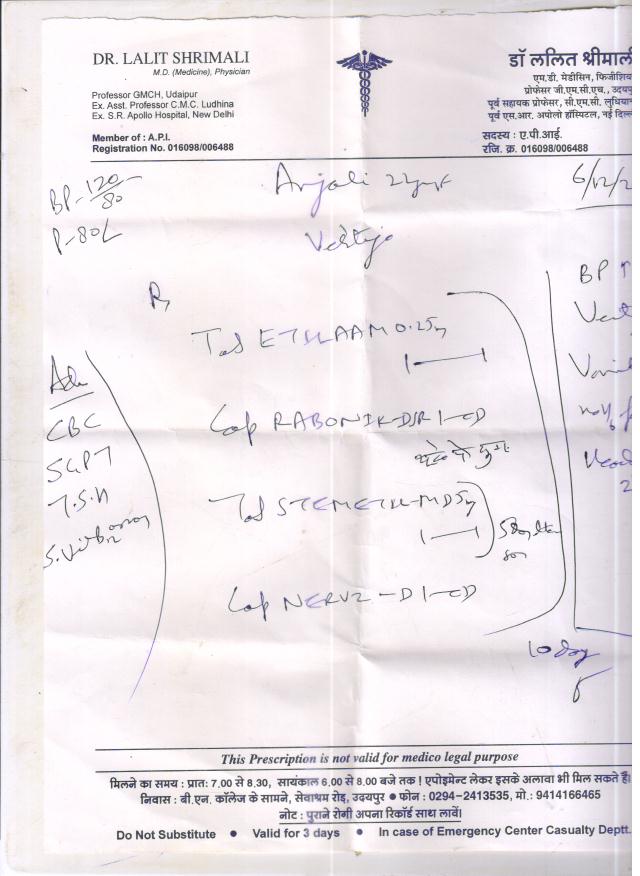 DR. LALIT SHRIMALI
M.D. (Medicine), Physician
Professor GMCH, Udaipur
Ex. Asst. Professor C.M.C. Ludhina
Ex. S.R. Apollo Hospital, New Delhi
Member of : A.P.I.
Registration No. 016098/006488
डॉ ललित श्रीमाल
एम.डी. मेडीसिन, फिजीशिय
प्रोफेसर जी.एम.सी.एच., उदयपु
पूर्व सहायक प्रोफेसर, सी.एम.सी. लुधिया
पूर्व एस.आर. अपोलो हॉस्पिटल, नई दिल्
सदस्य : ए.पी.आई.
रजि. क्र. 016098/006488
BP- 120/80
P-80/
Anjali
6/12/2
Vertigo
R
Tab 0.25
Cap RABONIK-DSR 1-OD
Tab STEMETIL-MD 5
Cap NERVZ-D 1-OD
10 day
CBC
SGPT
T.S.H
BP
This Prescription is not valid for medico legal purpose
मिलने का समय : प्रात: 7.00 से 8.30, सायंकाल 6.00 से 8.00 बजे तक ! एपोइमेन्ट लेकर इसके अलावा भी मिल सकते हैं।
निवास : बी.एन. कॉलेज के सामने, सेवाश्रम रोड़, उदयपुर ● फोन : 0294-2413535, मो.: 9414166465
नोट : पुराने रोगी अपना रिकॉर्ड साथ लावें।
Do Not Substitute ● Valid for 3 days ● In case of Emergency Center Casualty Deptt.